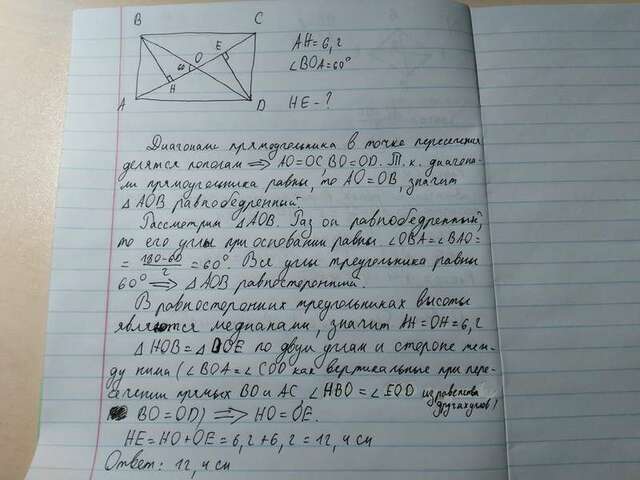 B C
E
O
60
H
A D
AH=6,2
∠BOA=60°
HE-?
Диагонали прямоугольника в точке пересечения
делятся пополам ⟹ AO=OC BO=OD. Т.к. диагона-
ли прямоугольника равны, то AO=OB, значит
△AOB равнобедренный.
Рассмотрим △AOB. Раз он равнобедренный,
то его углы при основании равны. ∠OBA=∠BAO=
= 180-60/2 = 60°. Все углы треугольника равны
60° ⟹ △AOB равносторонний.
В равносторонних треугольниках высоты
являются медианами, значит AH=OH=6,2
△HOB=△DOE по двум углам и стороне меж-
ду ними (∠BOA=∠COD как вертикальные при пере-
сечении прямых BO и AC, ∠HBO=∠EOD из равенства
других углов,
BO=OD) ⟹ HO=OE.
HE=HO+OE=6,2+6,2=12,4 см
Ответ: 12,4 см